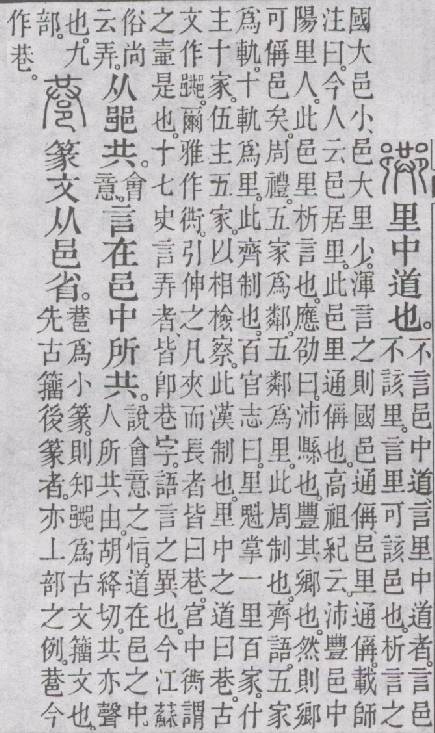 里中道也。
不言邑中道。言里中道者。言邑
不該里。言里可該邑也。析言之
國大邑小。邑大里少。渾言之則國邑通偁。邑里通偁。載師
注曰。今人云邑居里。此邑里通偁也。高祖紀云。沛豐邑中
陽里人。此邑里析言也。應劭曰。沛縣也。豐其鄉也。然則鄉
可偁邑矣。周禮。五家爲鄰。五鄰爲里。此周制也。齊語。五家
爲軌。十軌爲里。此齊制也。百官志曰。里魁掌一里百家。什
主十家。伍主五家。以相檢察。此漢制也。里中之道曰巷。古
文作𨞠。爾雅作衖。引伸之凡夾而長者皆曰巷。宫中衖謂
之壼是也。十七史言弄者皆卽巷字。語言之異也。今江蘇
俗尚
云弄。
从𨛜共。
會
意。
言在邑中所共。
說會意之恉。道在邑之中。
人所共由。胡絳切。共亦聲
也。九
部。
篆文从邑省。
爲小篆。則知𨞠爲古文籒文也。
先古籒後篆者。亦丄部之例。今
作巷。